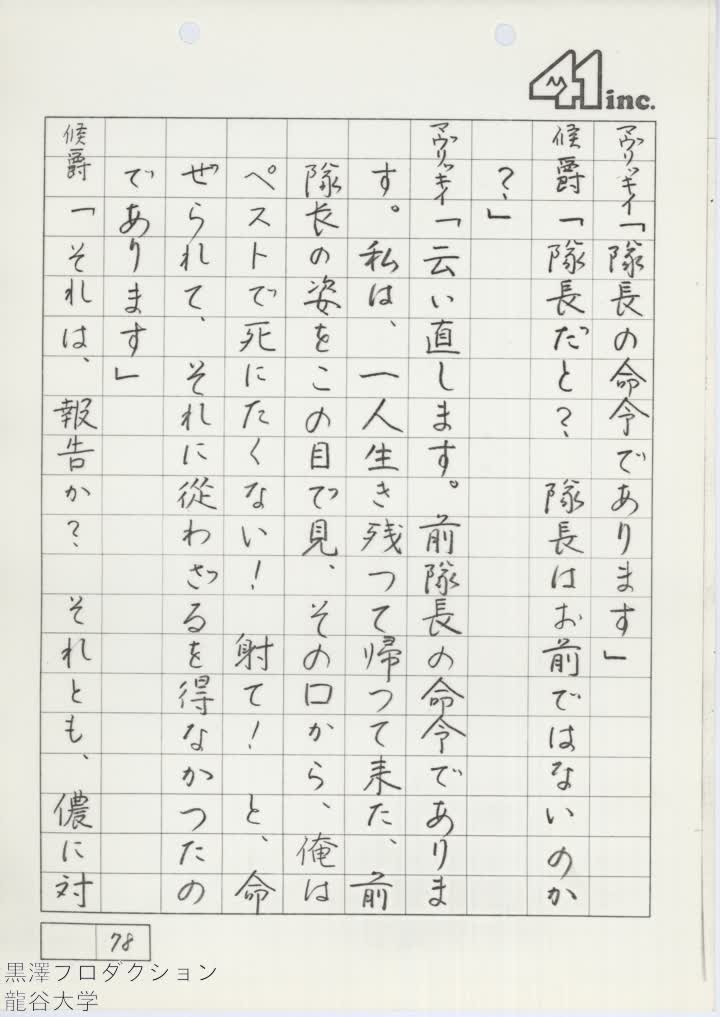 41 inc.
マヴリッキイ「隊長の命令であります」
候爵「隊長だと？　隊長はお前ではないのか
？」
マヴリッキイ「云い直します。前隊長の命令でありま
す。私は、一人生き残つて帰つて来た、前
隊長の姿をこの目で見、その口から、俺は
ペストで死にたくない！　射て！　と、命
ぜられて、それに従わざるを得なかつたの
であります」
候爵「それは、報告か？　それとも、儂に対
78
黒澤プロダクション
龍谷大学